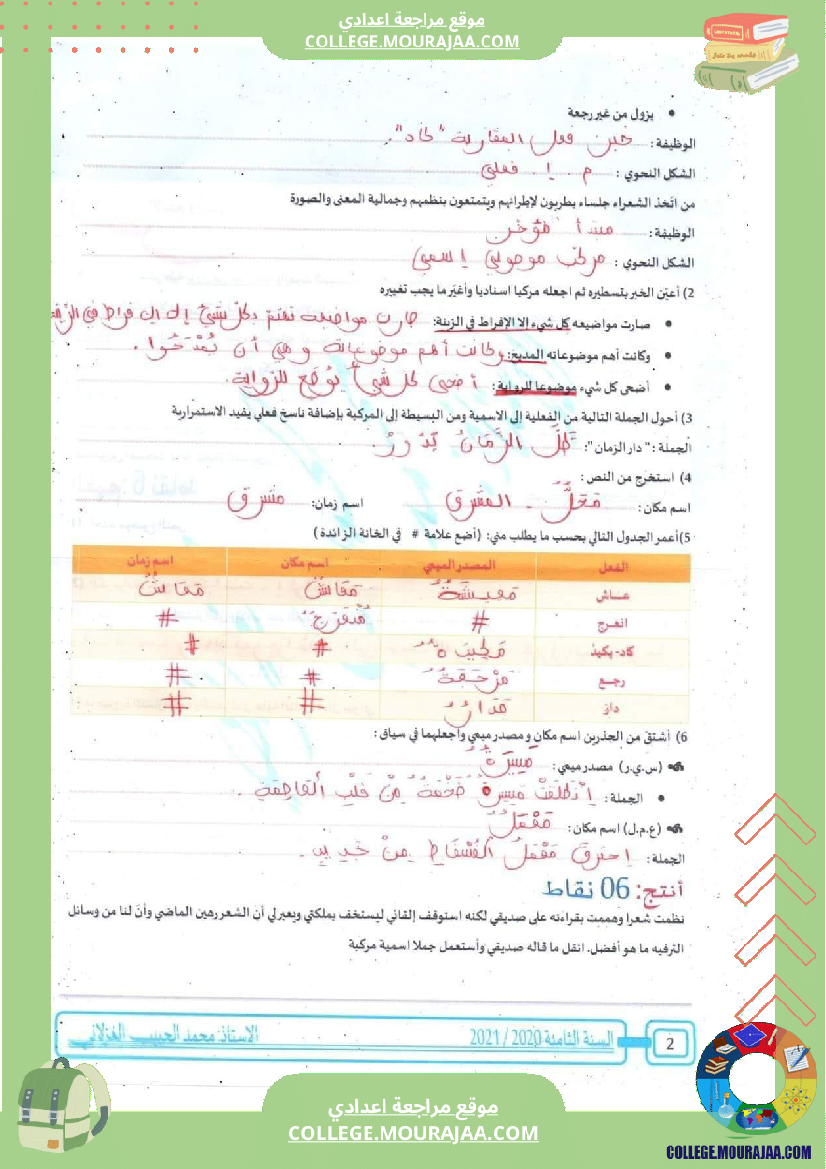 موقع مراجعة اعدادي
COLLEGE.MOURAJAA.COM
• يزول من غير رجعة
الوظيفة: خبر فعل المقاربة "كاد".
الشكل النحوي: م إ فعلي
من اتّخذ الشعراء جلساء يطربون لإطرائهم ويتمتعون بنظمهم وجمالية المعنى والصورة
الوظيفة: مبتدأ مؤخر
الشكل النحوي: مركب موصولي إسمي
2) أعيّن الخبر بتسطيره ثم اجعله مركبا اسناديا وأغيّر ما يجب تغييره
• صارت مواضيعه كل شيء إلا الإفراط في الزينة: صارت مواضيعه تهتم بكل شيء إلا الإفراط في
• وكانت أهم موضوعاته المديح: وكانت أهم موضوعاته وهي أن تمدحوا.
• أضحى كل شيء موضوعا للرواية: أضحى كل شيء يوضع للرواية.
3) أحول الجملة التالية من الفعلية إلى الاسمية ومن البسيطة إلى المركبة بإضافة ناسخ فعلي يفيد الاستمرارية
الجملة: "دار الزمان": ظلّ الزّمان يدور.
4) استخرج من النص:
اسم مكان: محلّ - المشرق اسم زمان: مشرق
5) أعمر الجدول التالي بحسب ما يطلب مني: (أضع علامة # في الخانة الزائدة)
الفعل المصدر الميمي اسم مكان اسم زمان
عــاش معيشة معاش معاش
انفرج # منفرج #
كاد- يكيد مكيدة # #
رجــع # #
دارَ مدار # #
6) أشتقّ من الجذرين اسم مكان ومصدر ميمي وأجعلهما في سياق:
(س.ي.ر) مصدر ميمي: مسيرة
• الجملة: انطلقت مسيرة ضخمة من قلب العاصمة.
(ع.م.ل) اسم مكان: معمل
الجملة: احترق معمل من جديد.
أنتج: 06 نقاط
نظمت شعرا وهممت بقراءته على صديقي لكنه استوقف إلقائي ليستخف بملكتي ويعبر لي أن الشعر رهين الماضي وأنّ لنا من وسائل
الترفيه ما هو أفضل. انقل ما قاله صديقي وأستعمل جملا اسمية مركبة
2
السنة الثامنة 2020 / 2021
الاستاذ: محمد الحبيب الغزلاني
موقع مراجعة اعدادي
COLLEGE.MOURAJAA.COM
COLLEGE.MOURAJAA.COM